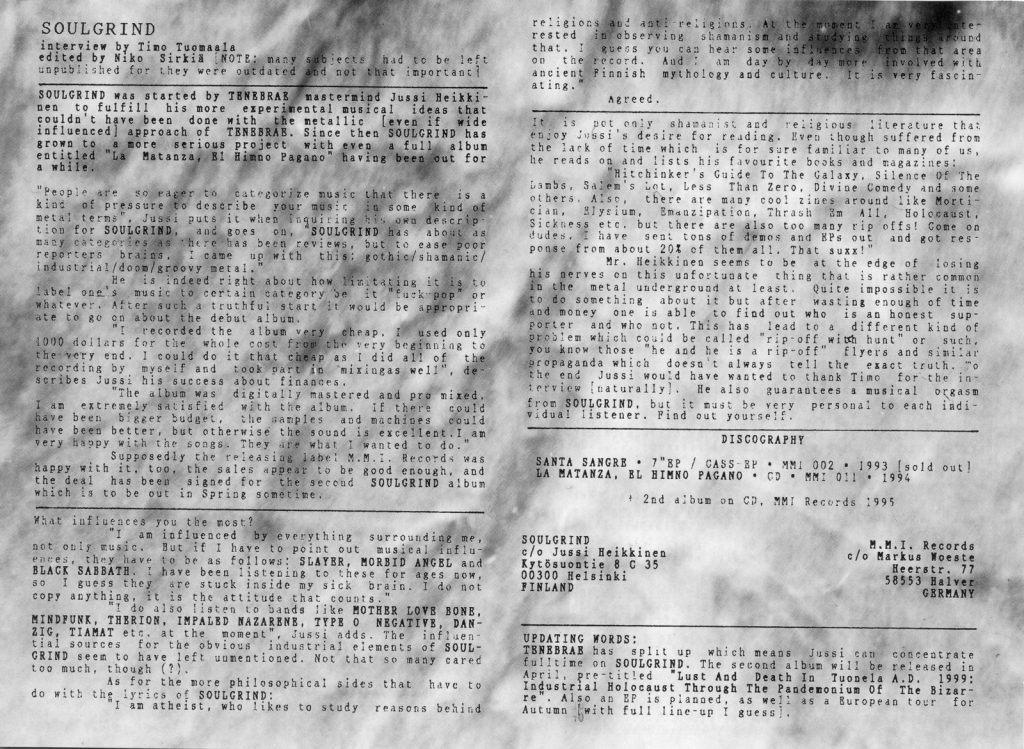 SOULGRIND
interview by Timo Tuomaala
edited by Niko Sirkiä [NOTE: many subjects had to be left
unpublished for they were outdated and not that important]
SOULGRIND was started by TENEBRAE mastermind Jussi Heikki-
nen to fulfill his more experimental musical ideas that
couldn't have been done with the metallic [even if wide
influenced] approach of TENEBRAE. Since then SOULGRIND has
grown to a more serious project with even a full album
entitled "La Matanza, El Himno Pagano" having been out for
a while.
"People are so eager to categorize music that there is a
kind of pressure to describe your music in some kind of
metal terms", Jussi puts it when inquiring his own descrip-
tion for SOULGRIND, and goes on, "SOULGRIND has about as
many categories as there has been reviews, but to ease poor
reporters brains, I came up with this: gothic/shamanic/
industrial/doom/groovy metal."
He is indeed right about how limitating it is to
label one's music to certain category be it "fuck-pop" or
whatever. After such a truthful start it would be appropri-
ate to go on about the debut album.
"I recorded the album very cheap. I used only
1000 dollars for the whole cost from the very beginning to
the very end. I could do it that cheap as I did all of the
recording by myself and took part in "mixingas well", de-
scribes Jussi his success about finances.
"The album was digitally mastered and pro mixed.
I am extremely satisfied with the album. If there could
have been bigger budget, the samples and machines could
have been better, but otherwise the sound is excellent.I am
very happy with the songs. They are what I wanted to do."
Supposedly the releasing label M.M.I. Records was
happy with it, too, the sales appear to be good enough, and
the deal has been signed for the second SOULGRIND album
which is to be out in Spring sometime.
What influences you the most?
"I am influenced by everything surrounding me,
not only music. But if I have to point out musical influ-
ences, they have to be as follows: SLAYER, MORBID ANGEL and
BLACK SABBATH. I have been listening to these for ages now,
so I guess they are stuck inside my sick brain. I do not
copy anything, it is the attitude that counts."
"I do also listen to bands like MOTHER LOVE BONE,
MINDFUNK, THERION, IMPALED NAZARENE, TYPE O NEGATIVE, DAN-
ZIG, TIAMAT etc. at the moment", Jussi adds. The influen-
tial sources for the obvious industrial elements of SOUL-
GRIND seem to have left unmentioned. Not that so many cared
too much, though (?).
As for the more philosophical sides that have to
do with the lyrics of SOULGRIND:
"I am atheist, who likes to study reasons behind
religions and anti-religions. At the moment I am very inte-
rested in observing shamanism and studying things around
that. I guess you can hear some influences from that area
on the record. And I am day by day more involved with
ancient Finnish mythology and culture. It is very fascin-
ating."
Agreed.
It is not only shamanist and religious literature that
enjoy Jussi's desire for reading. Even though suffered from
the lack of time which is for sure familiar to many of us,
he reads on and lists his favourite books and magazines:
"Hitchinker's Guide To The Galaxy, Silence Of The
Lambs, Salem's Lot, Less Than Zero, Divine Comedy and some
others. Also, there are many cool zines around like Morti-
cian, Elysium, Emanzipation, Thrash Em All, Holocaust,
Sickness etc. but there are also too many rip offs! Come on
dudes, I have sent tons of demos and EPs out and got res-
ponse from about 20% of them all. That suxx!"
Mr. Heikkinen seems to be at the edge of losing
his nerves on this unfortunate thing that is rather common
in the metal underground at least. Quite impossible it is
to do something about it but after wasting enough of time
and money one is able to find out who is an honest sup-
porter and who not. This has lead to a different kind of
problem which could be called "rip-off with hunt" or such,
you know those "he and he is a rip-off" flyers and similar
propaganda which doesn't always tell the exact truth. To
the end Jussi would have wanted to thank Timo for the in-
terview [naturally]. He also guarantees a musical orgasm
from SOULGRIND, but it must be very personal to each indi-
vidual listener. Find out yourself.
DISCOGRAPHY
SANTA SANGRE • 7"EP / CASS-EP • MMI 002 • 1993 [sold out]
LA MATANZA, EL HIMNO PAGANO • CD • MMI 011 • 1994
† 2nd album on CD, MMI Records 1995
SOULGRIND
c/o Jussi Heikkinen
Kytösuontie 8 C 35
00300 Helsinki
FINLAND
M.M.I. Records
c/o Markus Woeste
Heerstr. 77
58553 Halver
GERMANY
UPDATING WORDS:
TENEBRAE has split up which means Jussi can concentrate
fulltime on SOULGRIND. The second album will be released in
April, pre-titled "Lust And Death In Tuonela A.D. 1999:
Industrial Holocaust Through The Pandemonium Of The Bizar-
re". Also an EP is planned, as well as a European tour for
Autumn [with full line-up I guess].